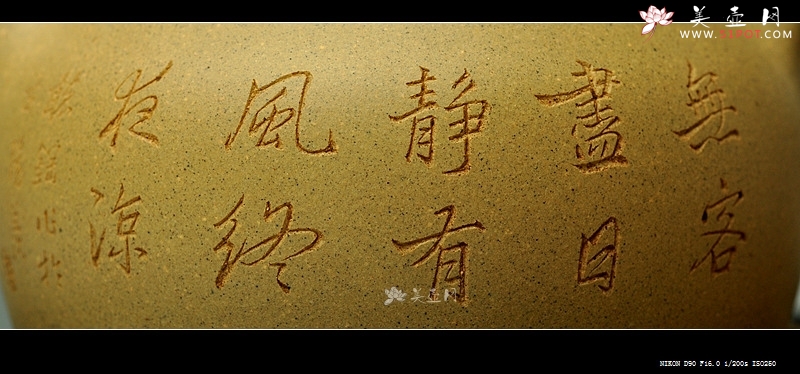 美壶网
WWW.51POT.COM
無客
盡日
静有
風终
夜凉
美壶网
NIKON D90 F16.0 1/200s ISO250